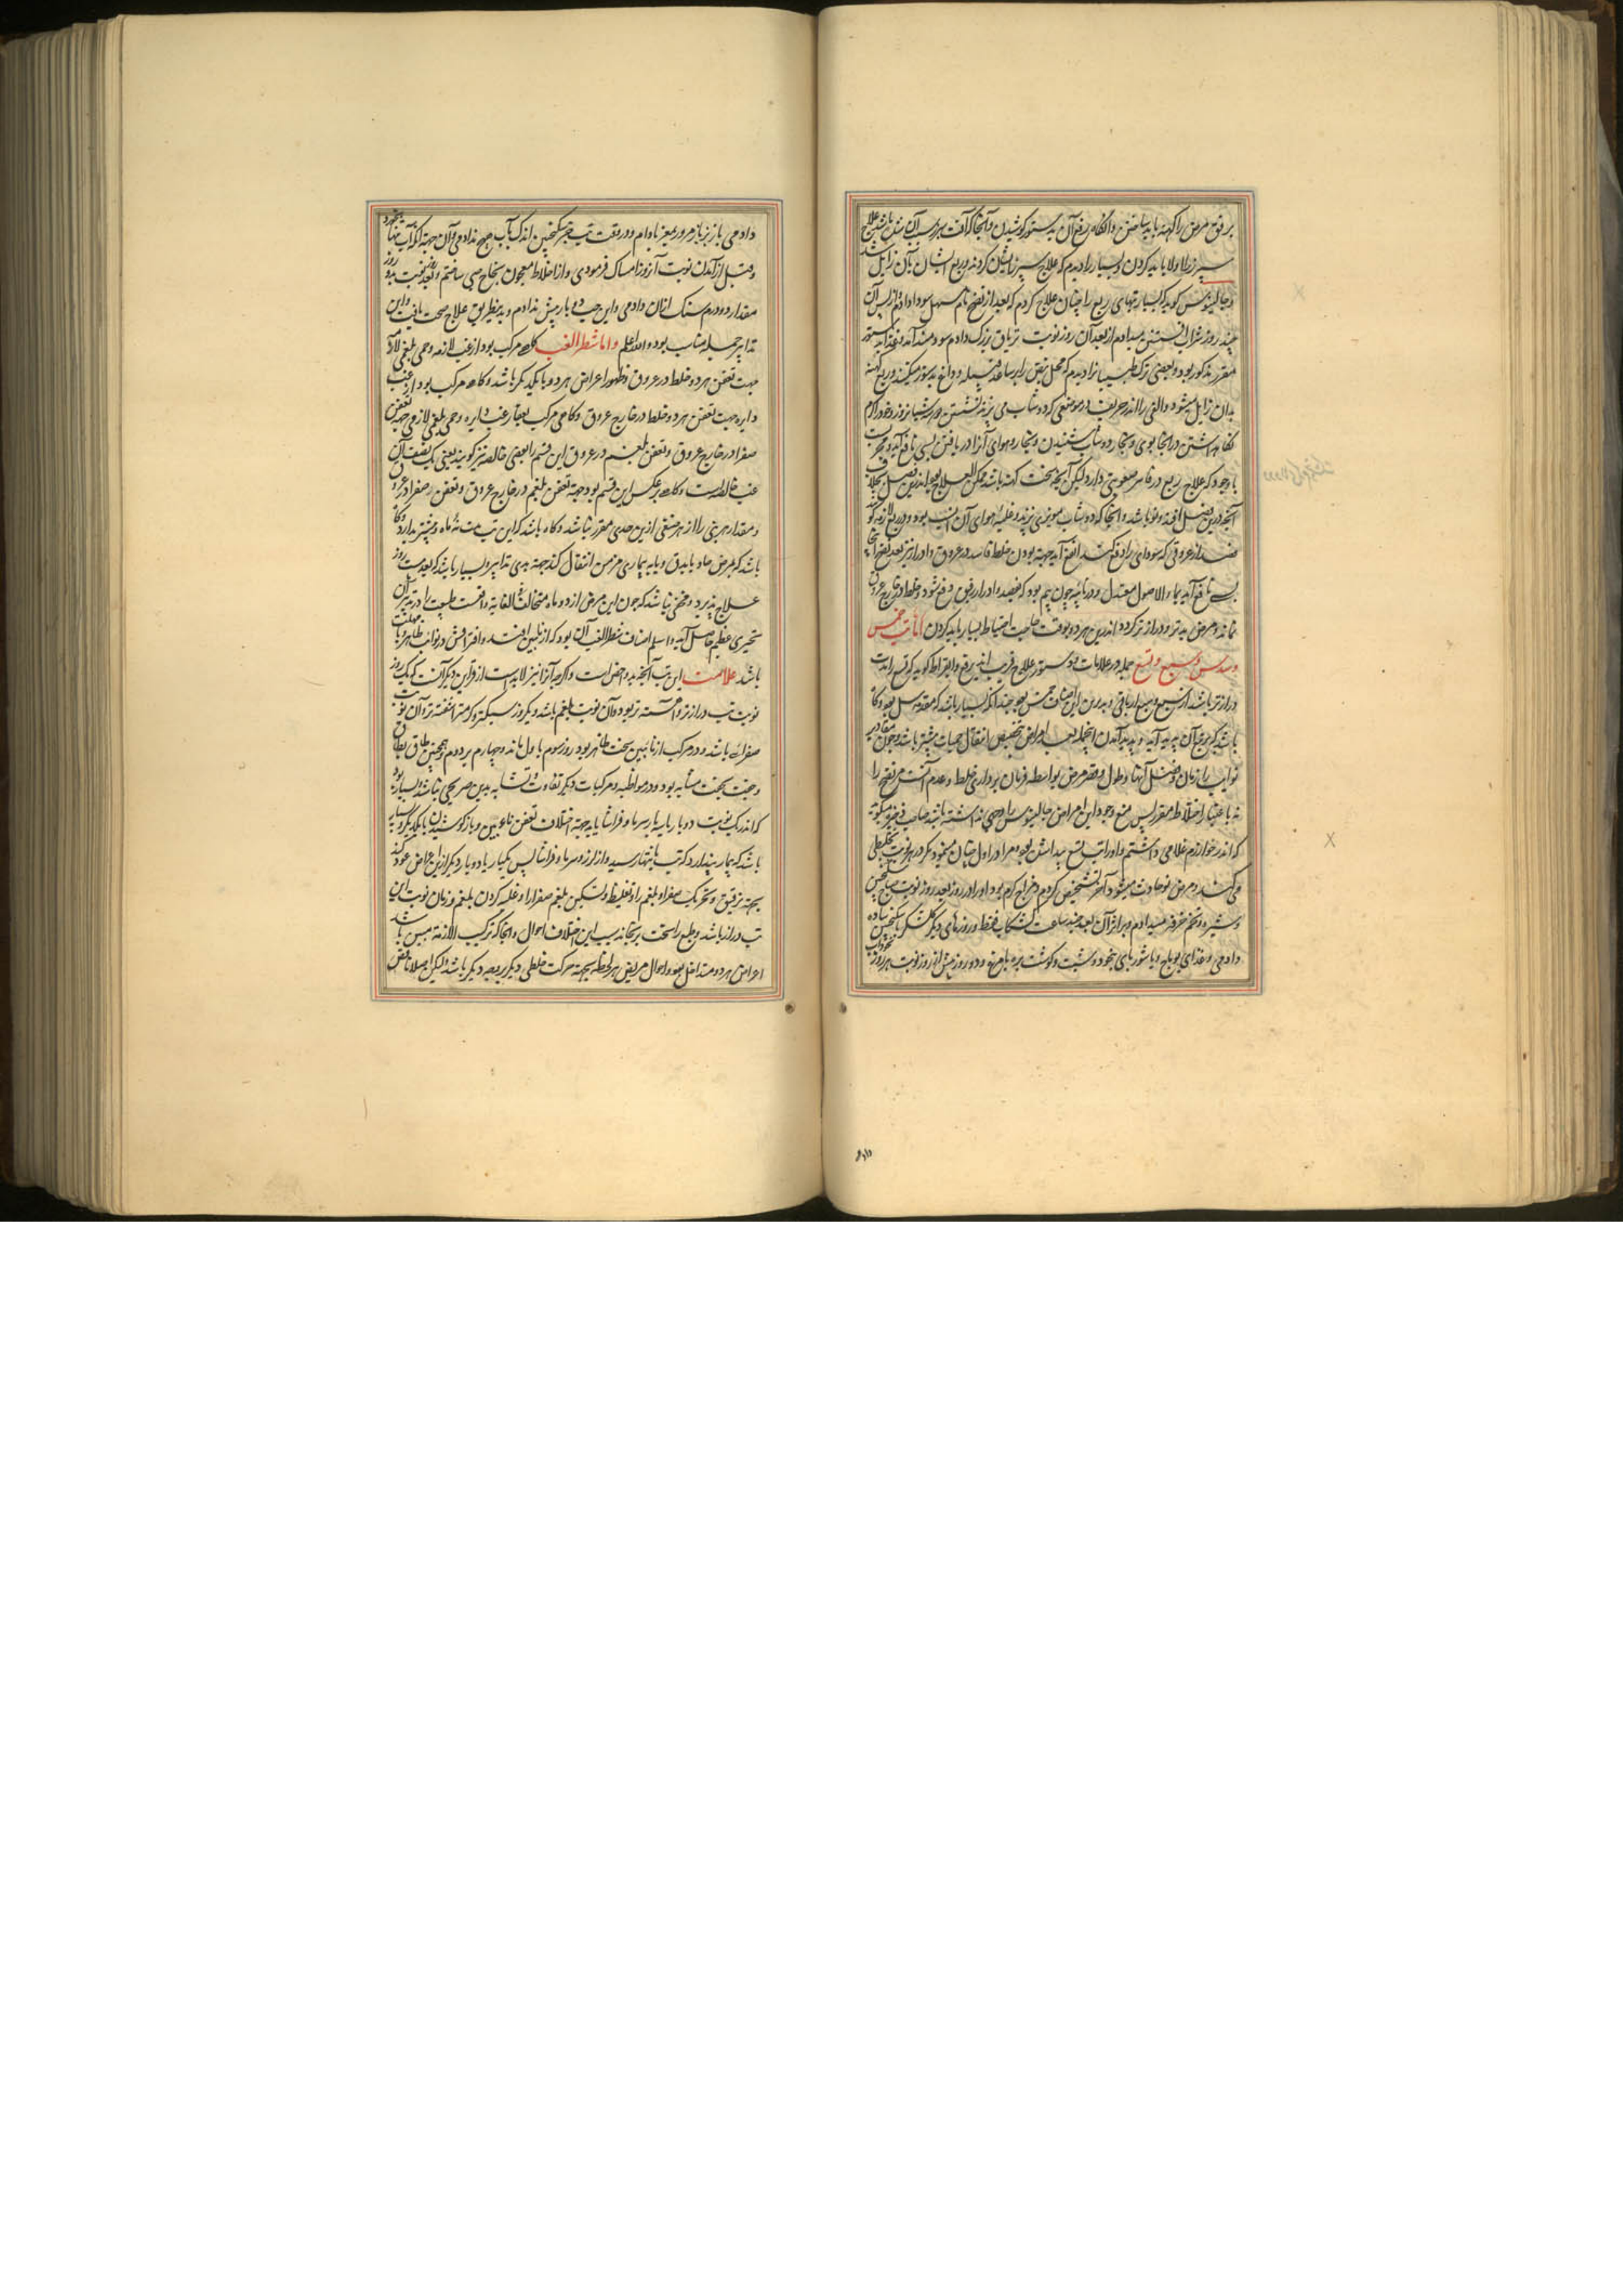 برفق مرض را کهنه باید ساختن و آنگاه در رفع آن بدستور کوشیدن و آنجا که آفت سپرز سبب آن باشد علاج
سپرز را اولا باید کردن و بسیار را دیدم که علاج سپرز ایشان کردند و ربع ایشان بآن زایل شد
و جالینوس کوید که بسیار تبهای ربع را چنان علاج کردم که بعد از نضج تام مسهل سودا دادم و از پس آن
چند روز شراب افسنتین میدادم از بعد آن روز نوبت تریاق بزرک دادم سودمند آمد و غذا بدستور
مقرر مذکور بود و بعضی ترک طبیبان را دیدم که محل نبض را بر ساعد فتیله و داغ بدستور میکنند و ربع کهنه
بدان زایل میشود و الغی را اندر خریف در موضعی که دوشاب می پزند نشستن در شبانروز و خود را کرم
نکاه داشتن و از آنجا بوی و بخار دوشاب شنیدن و بخار و هوای آنرا دریافتن بسی نافع آید و مجرب است
با وجود که علاج ربع در فاسد صعوبتی دارد لیکن آنچه سخت کهنه باشد ممکن العلاج بود اندرین فصل بخلاف
آنچه درین فصل افتد و نو باشد و آنجا که دوشاب مویزی پزند و غلبه هوای آن انسب بود و در ربع لازمه کو
فصد از عروقی که سودای را دفع کند انفع آید جهه بودن خلط فاسد در عروق و ادرار نیز بعد نضج آنجا
بسی نافع آید بماء الاصول معتدل و در نایبه چون بیم بود که بفصد و ادرار رقیق دفع شود و غلط در خارج عروق
بماند و مرض بدتر و درازتر کردد اندرین هر دو بوقت حاجت احتیاط بسیار باید کردن اما تب خمس
و سدس و سبع و تسع جمله در علامات و دستور علاج قریب اند بربع و بقراط کوید که تسع را مدت
درازتر باشد از سبع و سبع از باقی و بدترین این اصناف خمس بود چندانکه بسیار باشد که مقدمه سل بود و کاه
باشد که بربع آن پدید آید و پدید آمدن اینجمله بعد امراض بتخصیص انتقال حمیات بیشتر باشد و چون مقادیر
نوایب را زمان و فصل آنها و طول و قصر مرض بواسطه فرمان برداری خلط و عدم آنست مر نضج را
نه باعتبار اختلاط مقرر پس منع وجود این امراض جالینوس را وجهی نداشته باشد صاحب ذخیره کوید
که اندر خوارزم غلامی داشتم و او را تب تسع پیدا شد بود و مرا در اول چنان مینمود که در هر نوبت تخلیطی
می کند و مرض نو حادث میشود آخر تشخیص کردم و مزاج کرم بود او را در روز بعد روز نوبت صباح سکنجبین
و شیره و تخم خرفه میدادم و بر اثر آن بعد چند ساعت کشکاب فقط و روزهای دیکر کلشکر با سکنجبین ساده
دادمی و غذای بوباج و یا شوربای نخود و شبت و کوشت بره بامزه و دو روز پیش از روز نوبت هر روز نخوداب
دادمی باز زیرباز مزور بمغز بادام و در وقت تب جز سکنجبین اندک بآب هیچ ندادمی و آن جهه آنکه آب تنها نخورد
و قبل از آمدن نوبت آنروز امساک فرمودی و از اخلاط معجون نجاح حبی ساختم و بعد نوبت بدو روز
مقدار دو درم سنک از آن دادمی و این حب دو بار بیش ندادم و بدینطریق علاج صحت یافت و این
تدابیر جمله مناسب بود و الله اعلم واما شطر الغب کاه مرکب بود از غب لازمه و حمی بلغمی لازمه
جهت تعفن هر دو خلط در عروق و ظهور اعراض هر دو با یکدیکر باشد و کاه مرکب بود از غب
دایره جهت تعفن هر دو خلط در خارج عروق و کاهی مرکب بود از غب دایره و حمی بلغمی لازمی جهه تعفن
صفرا در خارج عروق و تعفن بلغم در عروق این قسم را بعضی خالصه نیز کویند یعنی یک نصف آن
غب خالصه است و کاه برعکس این قسم بود جهه تعفن بلغم در خارج عروق و تعفن صفرا در عروق
و مقدار هر تبی را از هر صنفی ازین حدی مقرر نباشد و کاه باشد که این تب مدت نه ماه و بیشتر بدارد و کاه
باشد که بمرض حاد یا بدق و یا به بیماری مزمن انتقال کند جهته بدی تدابیر و بسیار باشد که بعد مدت روز
علاج پذیرد و مخفی نباشد که چون این مرض از دو ماده متخالف فی الغایه واقعست طبیعت را در تدبیر آن
تحیری عظیم حاصل آید و اسلم اصناف شطر الغب آن بود که از نایبین افتد و افتراقش در نوایب ظاهر و با مهلت
باشد علامت این تب آنچه بدو اخص است و اکرچه آنرا نیز لابد است از قراین دیکر آنست که یک روز
نوبت تب درازتر و آهسته تر بود و آن نوبت بلغم باشد و یکروز سبکتر و کرمتر و آشفته تر و آن نوبت
صفرا باشد و در مرکب از نایبین سخت ظاهر بود روز سوم باول ماند و چهارم بدوم همچنین طاق بطاق
و جفت بجفت مشابه بود و در مواظبه و مرکبات دیکر تفاوت و تشابه بدین صریحی نباشد و بسیار بود
که اندر یک نوبت دو بار یا سه بار سرما و فراشا یابد جهه اختلاف تعفن نوعین و باز کوشیدن با یکدیکر و بسیار
باشد که بیمار پندارد که تب بانتها رسید و از لرز و سرما و فراشا پس یکبار یا دو بار دیکر از این اعراض عود کند
بجهته ترقیق و تحریک صفراء بلغم را و تغلیظ و تسکین بلغم صفرا را و غلبه کردن بلغم و زمان نوبت این
تب دراز باشد و طبع را سخت برنجاند بسبب این اختلاف احوال و آنجا که ترکیب از لازمه بین باشد
اعراض هر دو متداخل بود و احوال مریض هر لحظه بجهته حرکت خلطی دیکر بوجه دیکر باشد لیکن اصلا ناقض